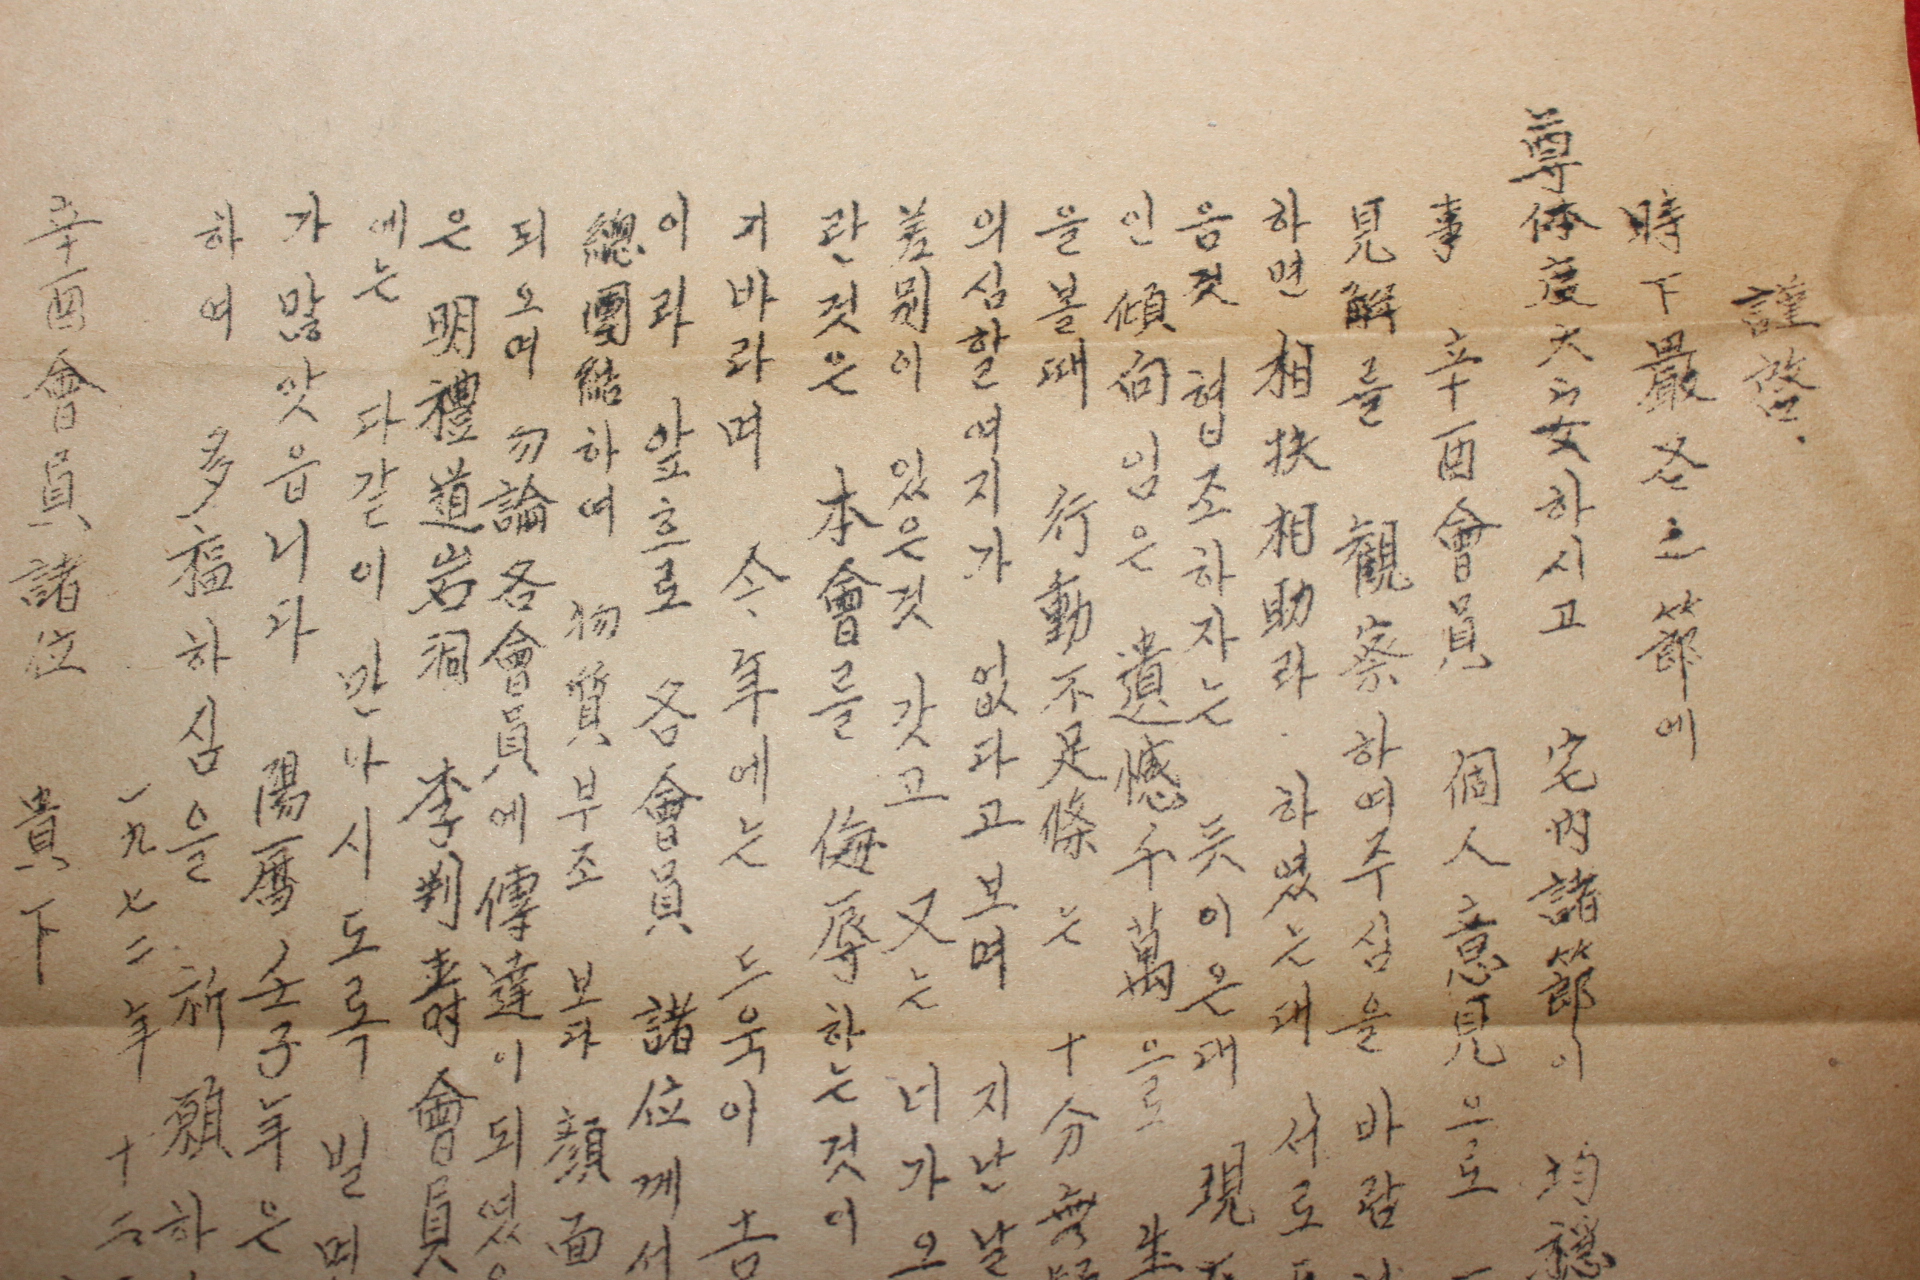 謹啓.
時下嚴冬之節에
尊体度大安하시고 宅內諸節이 均穩
事 辛酉會員 個人意見으로
見解를 觀察하여주심을 바람
하면 相扶相助라 하였는데 서로
음것 협조하자는 뜻이온대 現
인 傾向임은 遺憾千萬으로
을볼때 行動不足條는 十分無
의심할여지가 없다고보며 지난날
差別이 있은것 갖고 又는 너가오
란것은 本會를 侮辱하는것이
기바라며 今年에는 드욱이
이라 앞흐로 各會員 諸位께서
總團結하여 物質부조 보다 顔面
되오며 勿論各會員에 傳達이되였
은 明禮道岩洞 李判壽會員
에는 다같이만나시도록 빌며
가많앗읍니다 陽曆壬子年은
하여 多福하심을 祈願하
一九七二年 十二
辛酉會員諸位 貴下